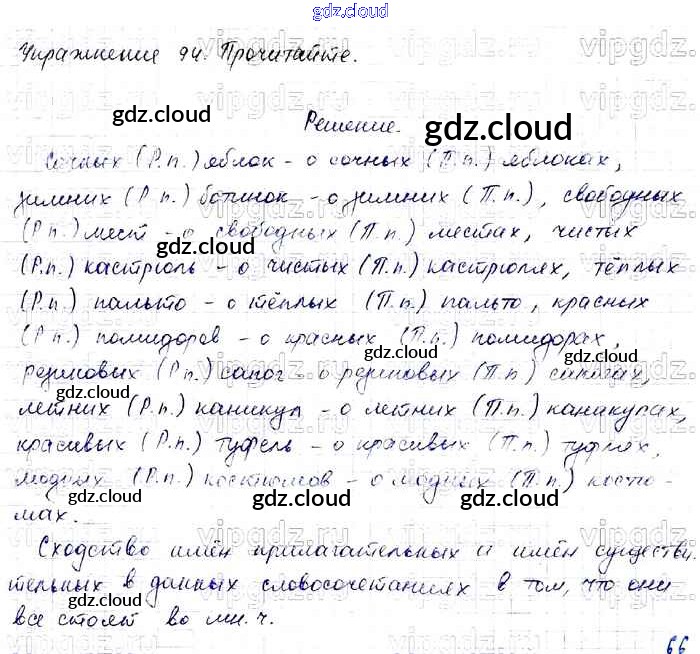 gdz.cloud
Упражнение 94. Прочитайте.
gdz.cloud
Решение. gdz.cloud
Сочных (Р.п.) яблок - о сочных (П.п.) яблоках,
зимних (Р.п.) ботинок - о зимних (П.п.), свободных
(Р.п.) мест - о свободных (П.п.) местах, чистых
gdz.cloud
(Р.п.) кастрюль - о чистых (П.п.) кастрюлях, тёплых
(Р.п.) пальто - о тёплых (П.п.) пальто, красных
(Р.п.) помидоров - о красных (П.п.) помидорах,
gdz.cloud gdz.cloud
резиновых (Р.п.) сапог - о резиновых (П.п) сапогах,
gdz.cloud gdz.cloud
летних (Р.п.) каникул - о летних (П.п.) каникулах,
красивых (Р.п.) туфель - о красивых (П.п.) туфлях,
модных (Р.п.) костюмов - о модных (П.п.) костю-
gdz.cloud gdz.cloud gdz.cloud
мах.
Сходство имён прилагательных и имён существи-
тельных в данных словосочетаниях в том, что они
все стоят во мн.ч.
66